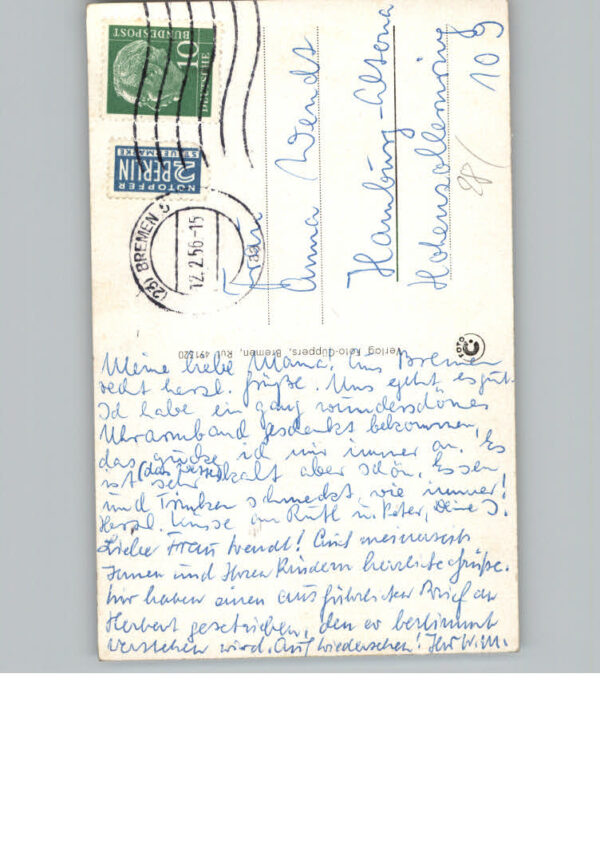 10
DEUTSCHE
BUNDESPOST
NOTOPFER
2 BERLIN
STEUERMARKE
(23) BREMEN 5
12.2.56-15
Frau
Anna Wendt
Hamburg-Altona
Hohenzollernring
109
28/
Verlag Foto-Düppers, Bremen, Ruf 491520
FOTO
Meine liebe Mama! Aus Bremen
recht herzl. Grüße. Uns geht es gut.
Ich habe ein ganz wunderschönes
Uhrarmband geschenkt bekommen,
das gucke ich mir immer an. Es
ist sehr (das Wetter) kalt aber schön. Essen
und Trinken schmeckt, wie immer!
Herzl. Küsse an Ruth u. Peter, Deine I.
Liebe Frau Wendt! Auch meinerseits
Ihnen und Ihren Kindern herzliche Grüße.
Wir haben einen ausführlichen Brief an
Herbert geschrieben, den er bestimmt
verstehen wird. Auf Wiedersehen! Ihr W.M.